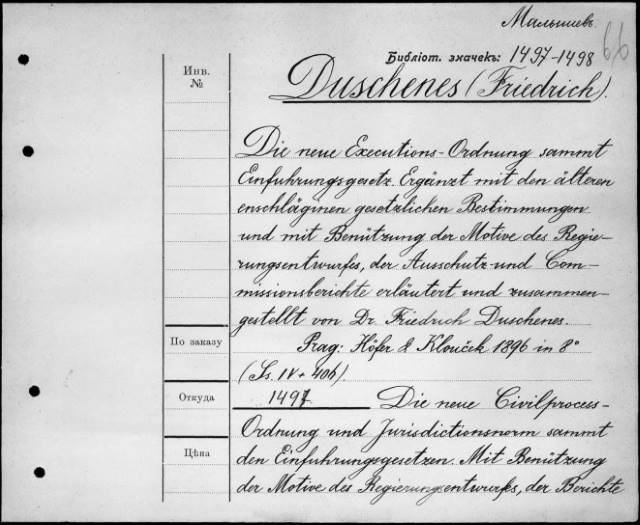 Малышевъ.
66
Библіот. значекъ: 1497-1498
Инв.
№
Duschenes (Friedrich).
Die neue Executions-Ordnung sammt
Einfuhrungsgesetz. Ergänzt mit den älteren
enschläginen gesetzlichen Bestimmungen
und mit Benützung der Motive des Regie-
rungsentwurfes, der Ausschutz-und Com-
missionsberichte erläutert und zusammen-
gestellt von Dr. Friedrich Duschenes.
По заказу
Prag: Höfer & Klouček 1896 in 8°
(Ss. IV + 406).
Откуда
1497 Die neue Civilprocess-
Ordnung und Jurisdictionsnorm sammt
Цѣна
den Einfuhrungsgesetzen. Mit Benützung
der Motive des Regierungsentwurfes, der Berichte